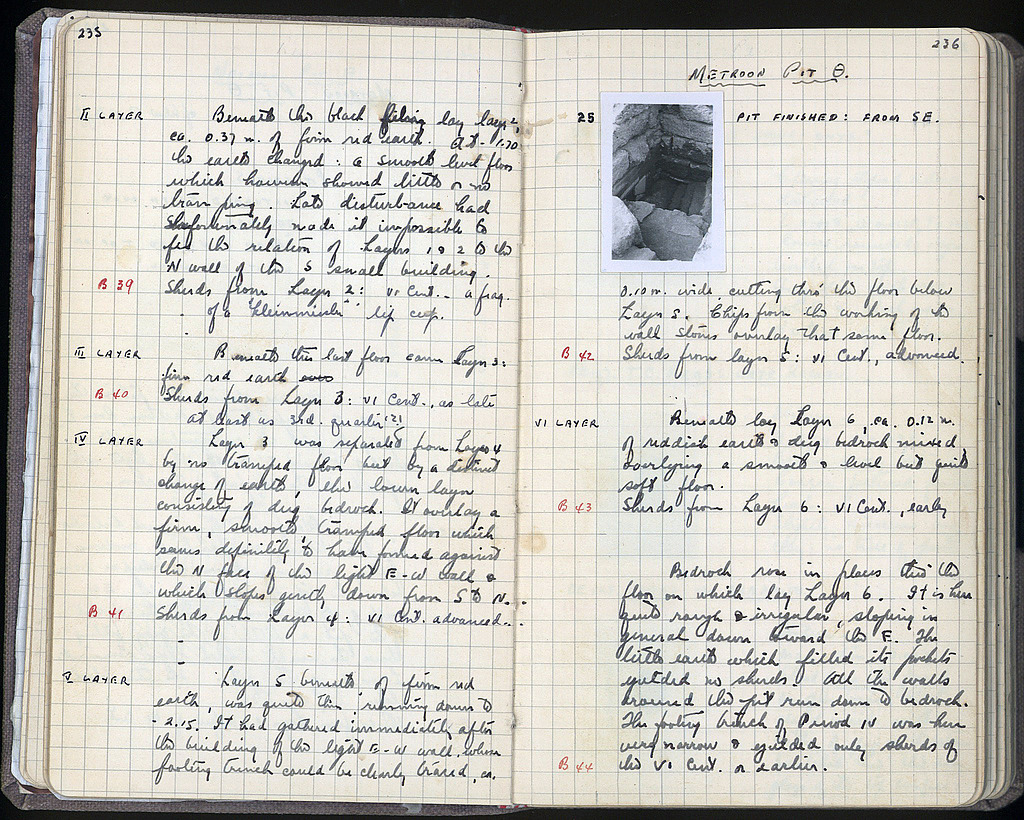 235
II LAYER Beneath this black filling lay layer 2,
ca. 0.37 m. of firm red earth. At - 1.70
the earth changed: a smooth level floor
which however showed little or no
tramping. Late disturbance had
unfortunately made it impossible to
fix the relation of Layers 1 & 2 to the
N wall of the S small building.
B 39 Sherds from Layer 2: VI Cent. - a frag.
of a "Kleinmeister" lip cup.
III LAYER Beneath this last floor came Layer 3:
firm red earth
B 40 Sherds from Layer 3: VI Cent., as late
at least as 3rd. quarter (?)
IV LAYER Layer 3 was separated from Layer 4
by no tramped floor but by a distinct
change of earth, the lower layer
consisting of dug bedrock. It overlay a
firm, smooth, tramped floor which
seems definitely to have formed against
the N face of the light E-W wall &
which slopes gently down from S to N.
B 41 Sherds from Layer 4: VI Cent. advanced.
V LAYER Layer 5 beneath, of firm red
earth, was quite thin, running down to
- 2.15. It had gathered immediately after
the building of the light E-W wall, whose
footing trench could be clearly traced, ca.
236
METROON PIT Θ.
25 PIT FINISHED: FROM SE.
0.10 m. wide, cutting thro' the floor below
Layer 5. Chips from the working of the
wall stones overlay that same floor.
B 42 Sherds from layer 5: VI Cent., advanced.
VI LAYER Beneath lay Layer 6, ca. 0.12 m.
of reddish earth & dug bedrock mixed,
overlying a smooth & level but quite
soft floor.
B 43 Sherds from Layer 6: VI Cent., early
Bedrock rose in places thro' the
floor on which lay Layer 6. It is here
quite rough & irregular, sloping in
general down toward the E. The
little earth which filled its pockets
yielded no sherds. All the walls
around the pit run down to bedrock.
The footing trench of Period IV was here
very narrow & yielded only sherds of
B 44 the VI Cent. or earlier.